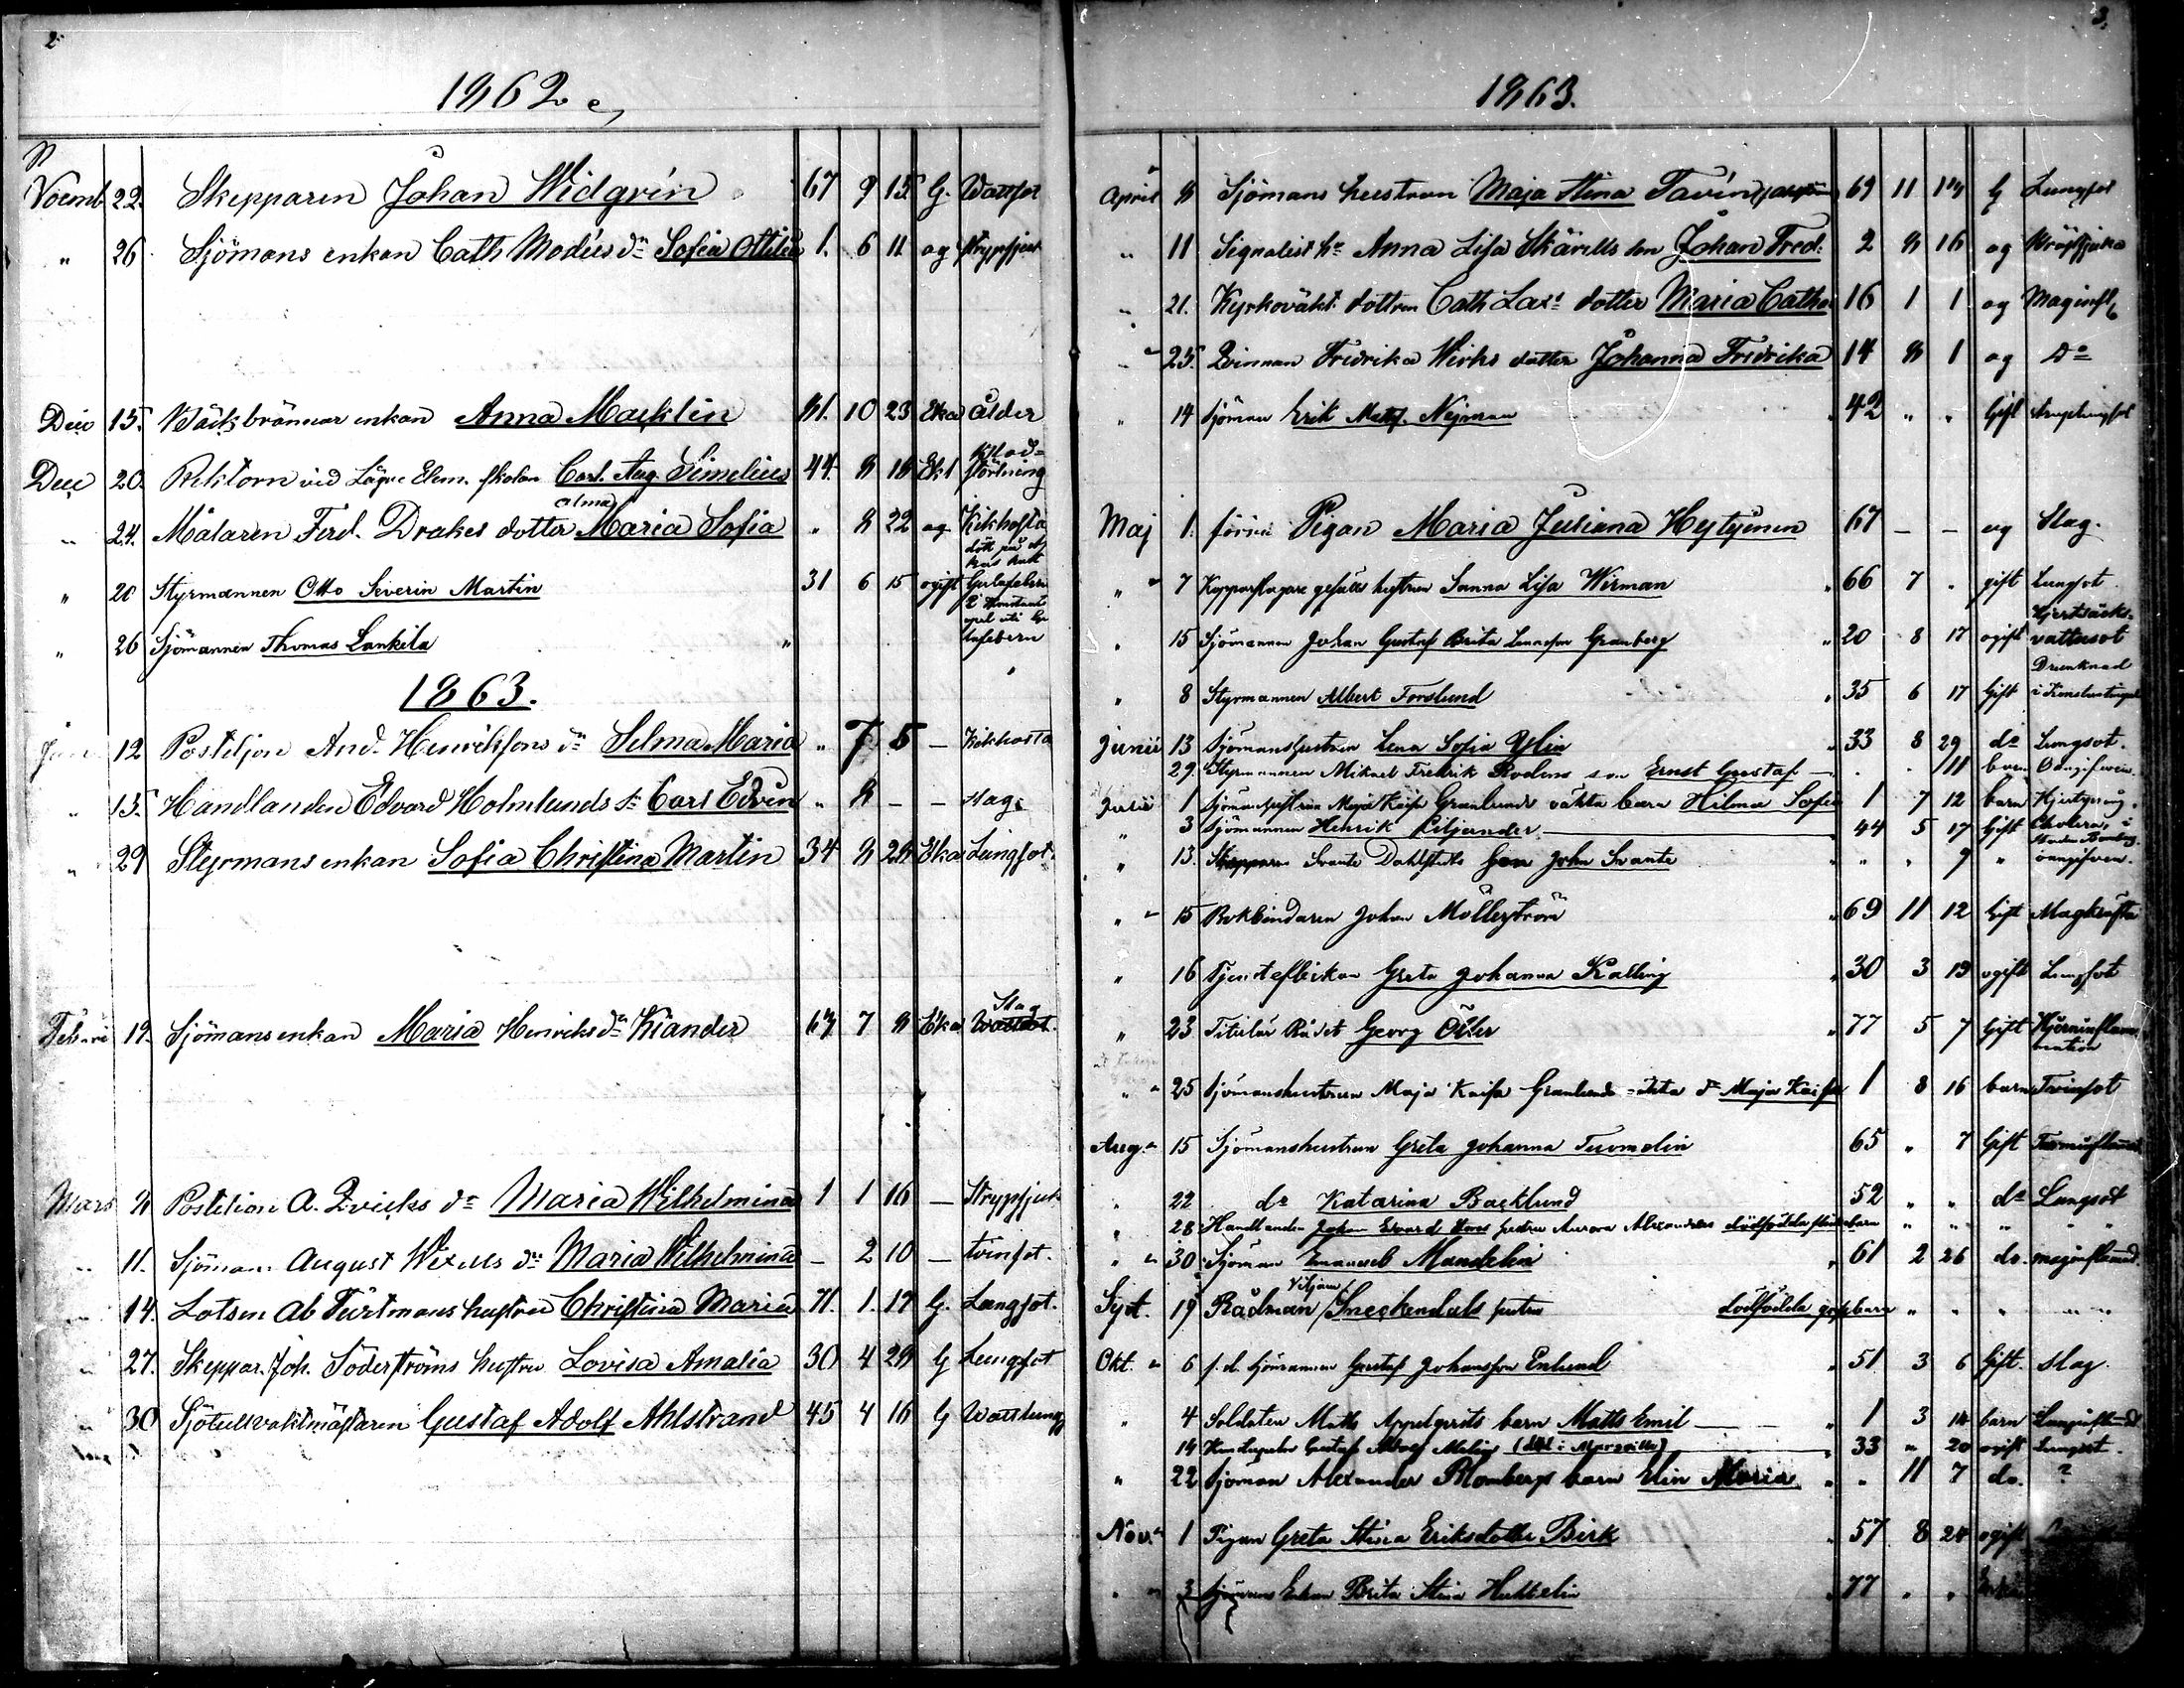 2.
1862.
Novemb 22. Skepparen Johan Widgrén 67 9 15 G. Wattsot
" 26 Sjömans enkan Cath Modées dr Sofia Ottilia 1. 6 11 og Strypsjuk
Dec 15. enkan Anna Macklin 81. 10 23 Eka ålder
Dec 20. Rektorn vid Lägre Elem. skolan Carl Aug. Simelius 44. 8 18 Ekl Blodstörtning
" 24. Målaren Ferd. Drakes dotter Alma Maria Sofia " 8 22 og Kikhosta
" 20 Styrmannen Otto Severin Martin 31 6 15 ogift
" 26 Sjömannen Thomas Lankila "
1863.
Jan 12 Postiljon And. Henrikssons dr Selma Maria " 7 5 — Kikhosta
" 15. Handlanden Edvard Holmlunds s. Carl Edvin " 8 — — Slag
" 29 Styrmans enkan Sofia Christina Martin 34 8 28 Eka Lungsot.
Febru 19. Sjömans enkan Maria Henriksdr Kiander 67 7 8 Eka Slag Wattsot.
Mars 8 Postilion A. Qvicks dr Maria Wilhelmina 1 1 16 — Strypsjuk
" 11. Sjöman August Wixells dr Maria Wilhelmina — 2 10 — tvinsot.
" 14. Lotsen Ab Türtmans hustru Christina Maria 71. 1. 17 G. Lungsot.
" 27. Skeppar. Joh. Söderströms hustru Lovisa Amalia 30 4 28 G Lungsot
" 30 Sjötullvaktmästaren Gustaf Adolf Ahlstrand 45 4 16 G
3.
1863.
April 8 Sjömans hustrun Maja Stina Tavín 69 11 G Lungsot
" 11 Signalist hu Anna Lisa Skärells son Johan Fred. 2 8 16 og
" 21. Kyrkovakt. dottren Cath dotter Maria Cath 16 1 1 og Maginfl
" 25. Qvinnan Fredrika Wirks dotter Johanna Fredrika 14 8 1 og Do
" 14 Sjöman Erik Matts. Nyman 42 " " Gift
Maj 1. Pigan Maria Juliana Heytyinen 67 — — og Slag.
" 7 Kopparslagare gesälls hustrun Sanna Lisa Wirman 66 7 " gift Lungsot
" 15 Sjömannen Johan Gustaf Brita Granberg 20 8 17 ogift Hjertsäcksvattusot
" 8 Styrmannen Albert Forslund 35 6 17 Gift Drunknad i
Junii 13 Sjömanshustrun Lena Sofia Ylin 33 8 29 do Lungsot.
29. Styrmannen Mikael Fredrik Rodens son Ernst Gustaf — . . 11 barn Oangifven.
Julii 1 Sjömanshustrun Maja Kaisa Granlunds oäkta barn Hilma Sofia 1 7 12 barn
" 3 Sjömannen Henrik Liljander — 44 5 17 Gift Cholera, i
" 13. Skepparen Svante Dahlstedts Son John Svante " " 9 " oangifven.
" 15 Bokbindaren Johan Möllerström 69 11 12 Gift Magkräfta
" 16 Tjensteflickan Greta Johanna Kalling 30 3 19 ogift Lungsot
" 23 Titulär Rådet Georg Öller 77 5 7 Gift Hjerninflammation
" 25 Sjömanshustrun Maja Kaisa Granlunds oäkta dr Maja Kaisa 1 8 16 barn Tvinsot
Aug. 15 Sjömanshustrun Greta Johanna Tuomelin 65 " 7 Gift
" 22 do Katarina Backlund 52 " " do Lungsot
" 28 Handlanden Johan Edvard hustru Aurora Alexandras dödfödda flickebarn " " " "
" 30 Sjöman Emanuel Mandelin 61 2 26 do. maginflamd.
Sept. 19 Rådman Viljam Sneckendals hustru dödfödda gossbarn " " "
Okt. 6 f.d. Sjömannen Gustaf Johansson Enlund 51 3 6 Gift. Slag.
" 4 Soldaten Matts Appelqvists barn Matts Emil — 1 3 14 barn
14 Gustaf Adolf Malin (död i Marseille) 33 " 20 ogift Lungsot.
" 22 Sjöman Alexander Blombergs barn Elin Maria " 11 7 do. ?
Nov. 1 Pigan Greta Stina Eriksdotter Birk 57 8 24 ogift
" 3 Sjömans Enkan Brita Stina Huttelin 77 " "